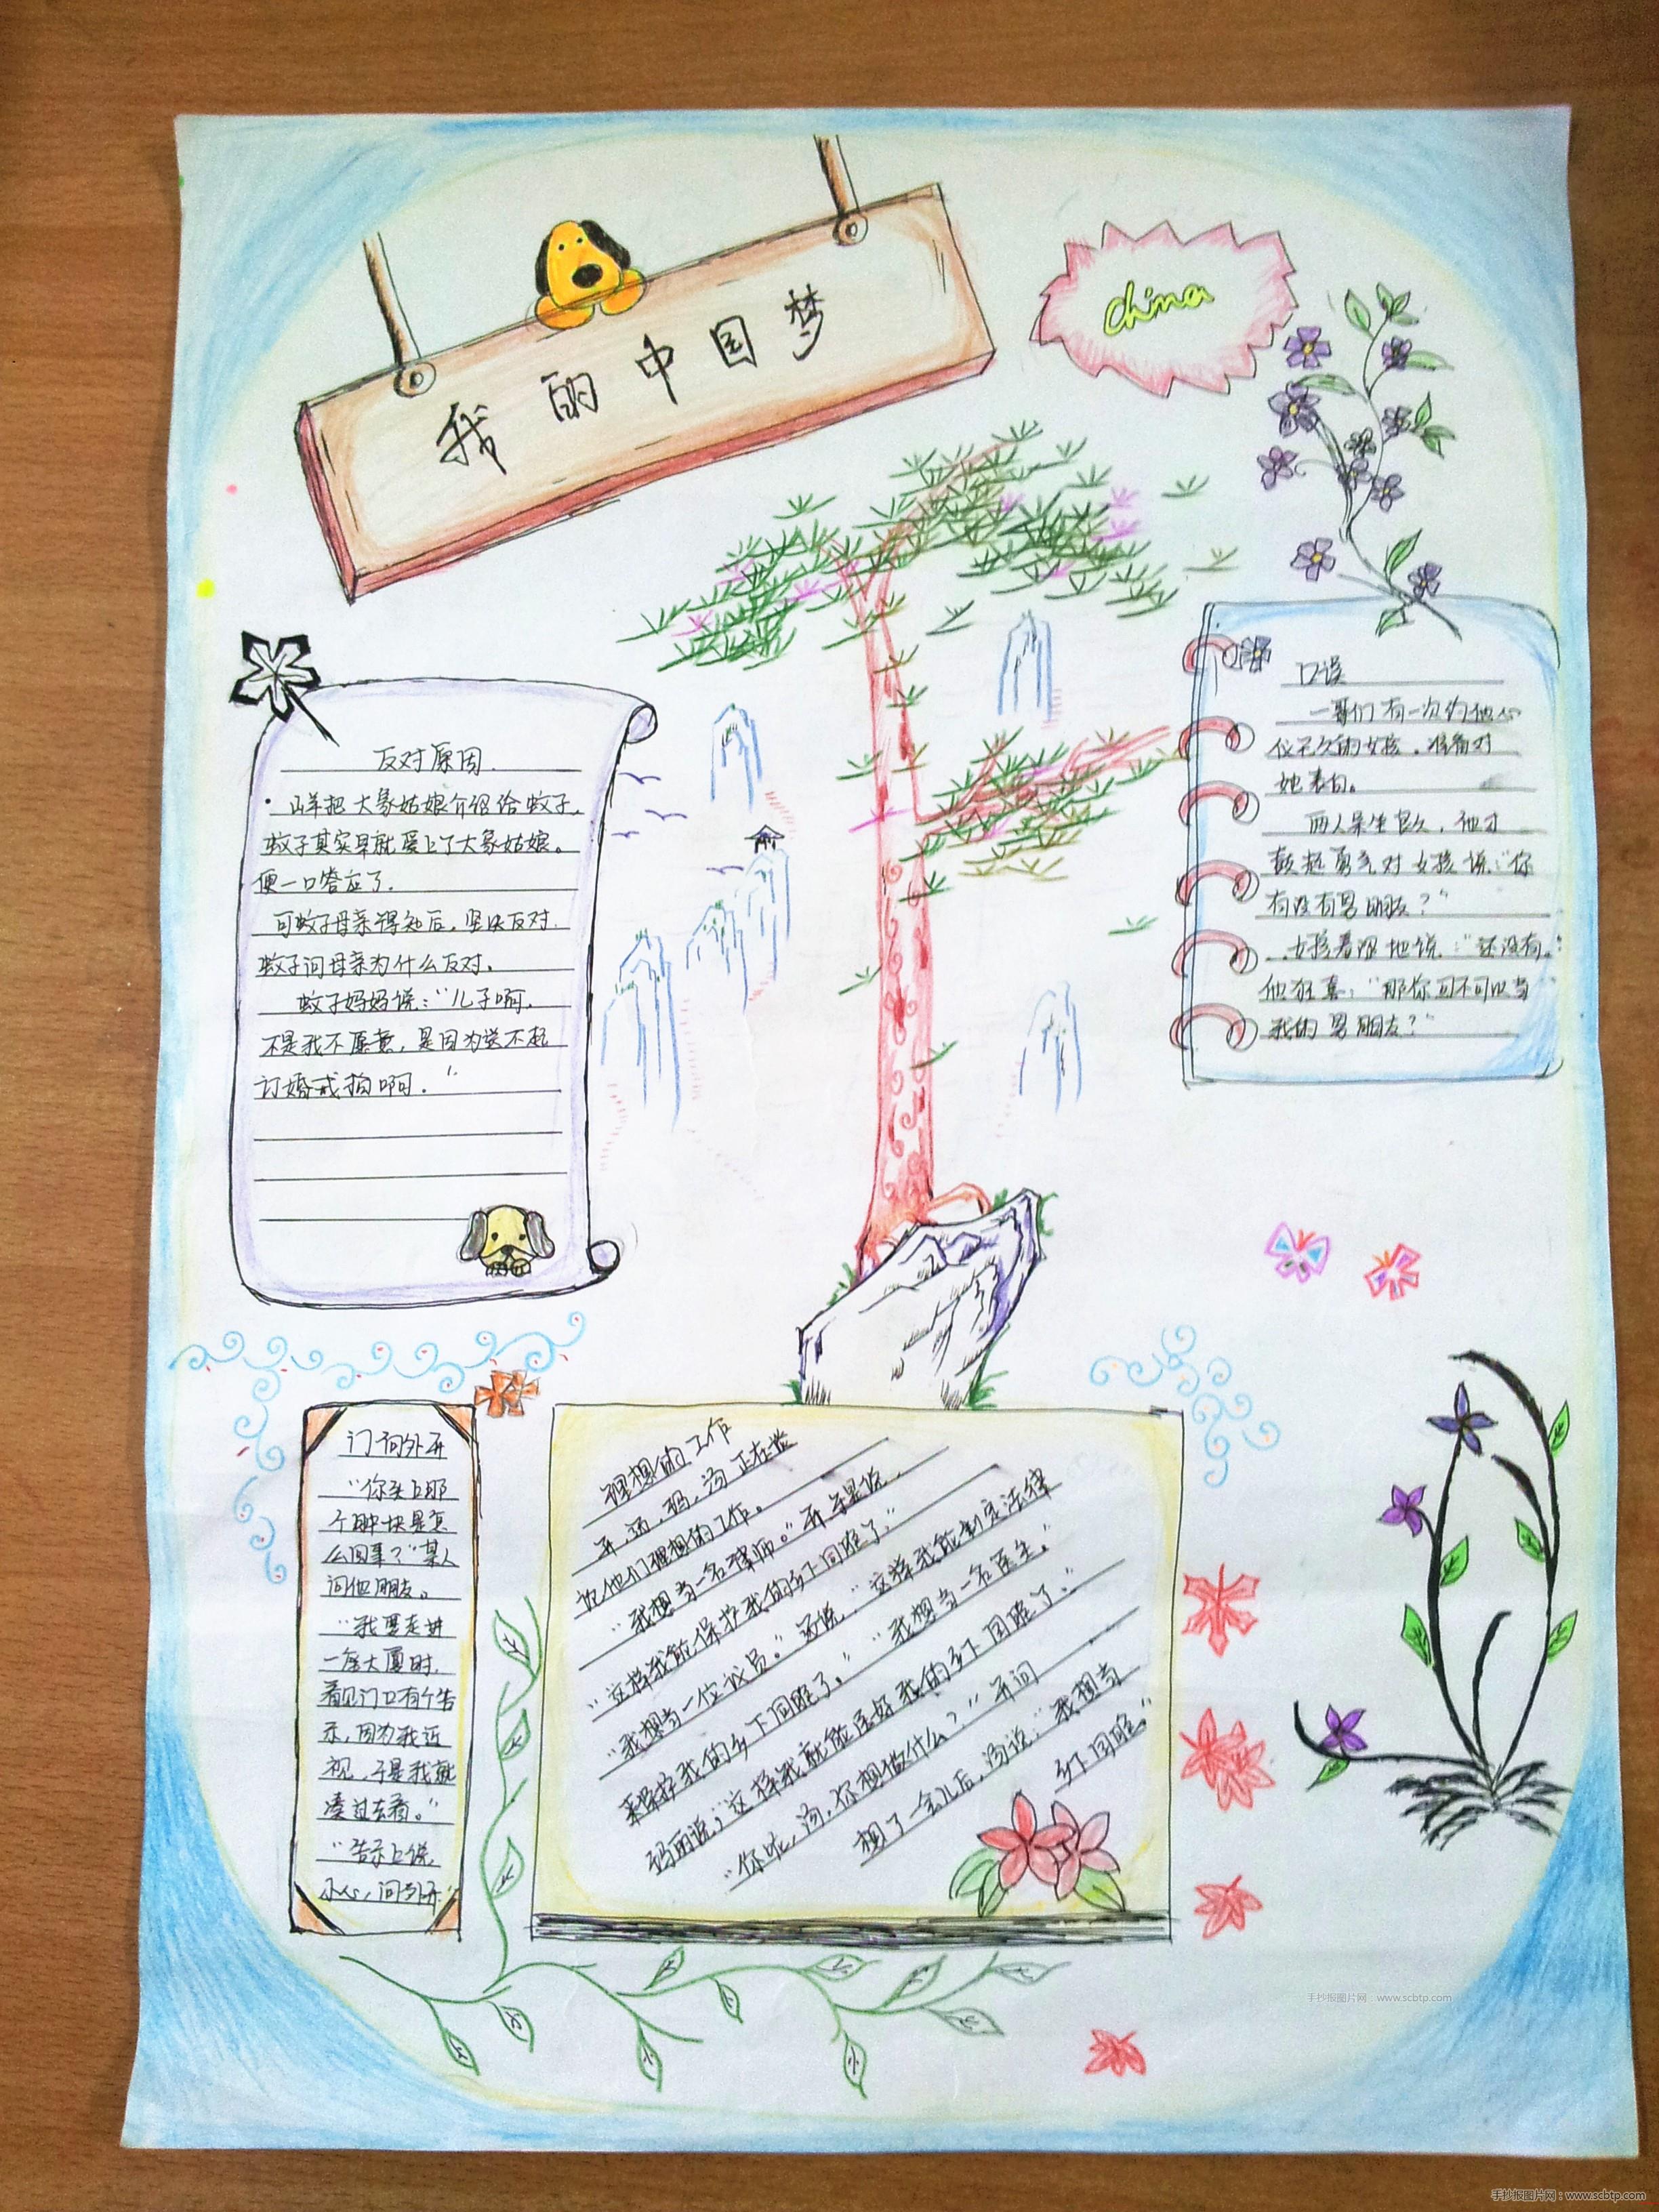 我的中国梦
China
反对原因.
·山羊把大象姑娘介绍给蚊子,
蚊子其实早就爱上了大象姑娘。
便一口答应了.
可蚊子母亲得知后,坚决反对.
蚊子问母亲为什么反对.
蚊子妈妈说:“儿子啊,
不是我不愿意,是因为送不起
订婚戒指啊."
口误
一哥们有一次约他心
仪已久的女孩,准备对
她表白。
两人呆坐良久,他才
鼓起勇气对女孩说:“你
有没有男朋友?"
女孩着跟地说:“还没有。"
他狂喜:“那你可不可以当
我的男朋友?"
门向外开
“你头上那
个肿块是怎
么回事?"某人
问他朋友。
“我要走进
一座大厦时,
看见门上有个告
示,因为我近
视,于是我就
凑过去看。"
“告示上说,
小心,门向外开"
理想的工作
开,汤,玛,汤正在谈
论他们理想的工作。
“我想当一名律师。"开乐恩说,
“这样我能保护我的乡下同胞了."
“我想当一位议员."汤说,“这样我能制定法律
来保护我的乡下同胞了."“我想当一名医生."
玛丽说;“这样我就能医好我的乡下同胞了."
“你呢,汤,你想做什么?"开问
想了一会儿后,汤说:“我想当
乡下同胞"
手抄报图片网:www.scbtp.com
手抄报图片网:www.scbtp.com